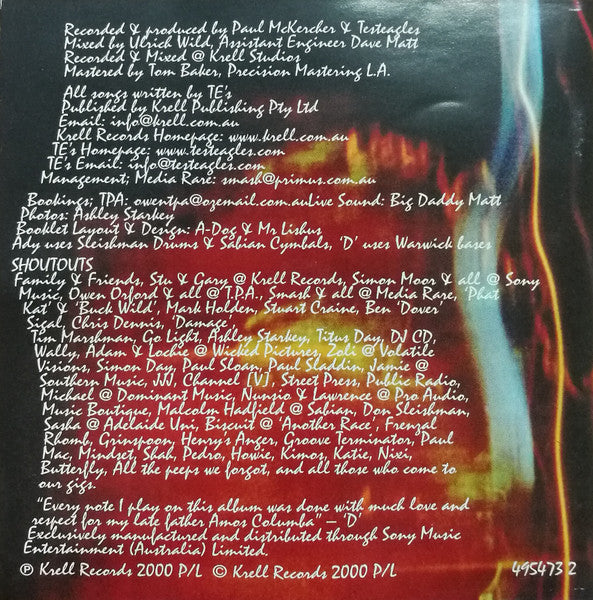 Recorded & produced by Paul McKercher & Testeagles
Mixed by Ulrich Wild, Assistant Engineer Dave Matt
Recorded & Mixed @ Krell Studios
Mastered by Tom Baker, Precision Mastering L.A.
All songs written by TE's
Published by Krell Publishing Pty Ltd
Email: info@krell.com.au
Krell Records Homepage: www.krell.com.au
TE's Homepage: www.testeagles.com
TE's Email: info@testeagles.com
Management; Media Rare: smash@primus.com.au
Bookings; TPA: owentpa@ozemail.com.auLive Sound: Big Daddy Matt
Photos: Ashley Starkey
Booklet Layout & Design: A-Dog & Mr Lishus
Ady uses Sleishman Drums & Sabian Cymbals, 'D' uses Warwick bases
SHOUTOUTS
Family & Friends, Stu & Gary @ Krell Records, Simon Moor & all @ Sony
Music, Owen Orford & all @ T.P.A., Smash & all @ Media Rare, 'Phat
Kat' & 'Buck Wild', Mark Holden, Stuart Craine, Ben 'Dover'
Sigal, Chris Dennis, 'Damage',
Tim Marshman, Go Light, Ashley Starkey, Titus Day, DJ CD,
Wally, Adam & Lochie @ Wicked Pictures, Zoli @ Volatile
Visions, Simon Day, Paul Sloan, Paul Sladdin, Jamie @
Southern Music, JJJ, Channel [V], Street Press, Public Radio,
Michael @ Dominant Music, Nunsio & Lawrence @ Pro Audio,
Music Boutique, Malcolm Hadfield @ Sabian, Don Sleishman,
Sasha @ Adelaide Uni, Biscuit @ 'Another Race', Frenzal
Rhomb, Grinspoon, Henry's Anger, Groove Terminator, Paul
Mac, Mindset, Shah, Pedro, Howie, Kimos, Katie, Nixi,
Butterfly, All the peeps we forgot, and all those who come to
our gigs.
"Every note I play on this album was done with much love and
respect for my late father Amos Columba" – 'D'
Exclusively manufactured and distributed through Sony Music
Entertainment (Australia) Limited.
℗ Krell Records 2000 P/L © Krell Records 2000 P/L
495473 2